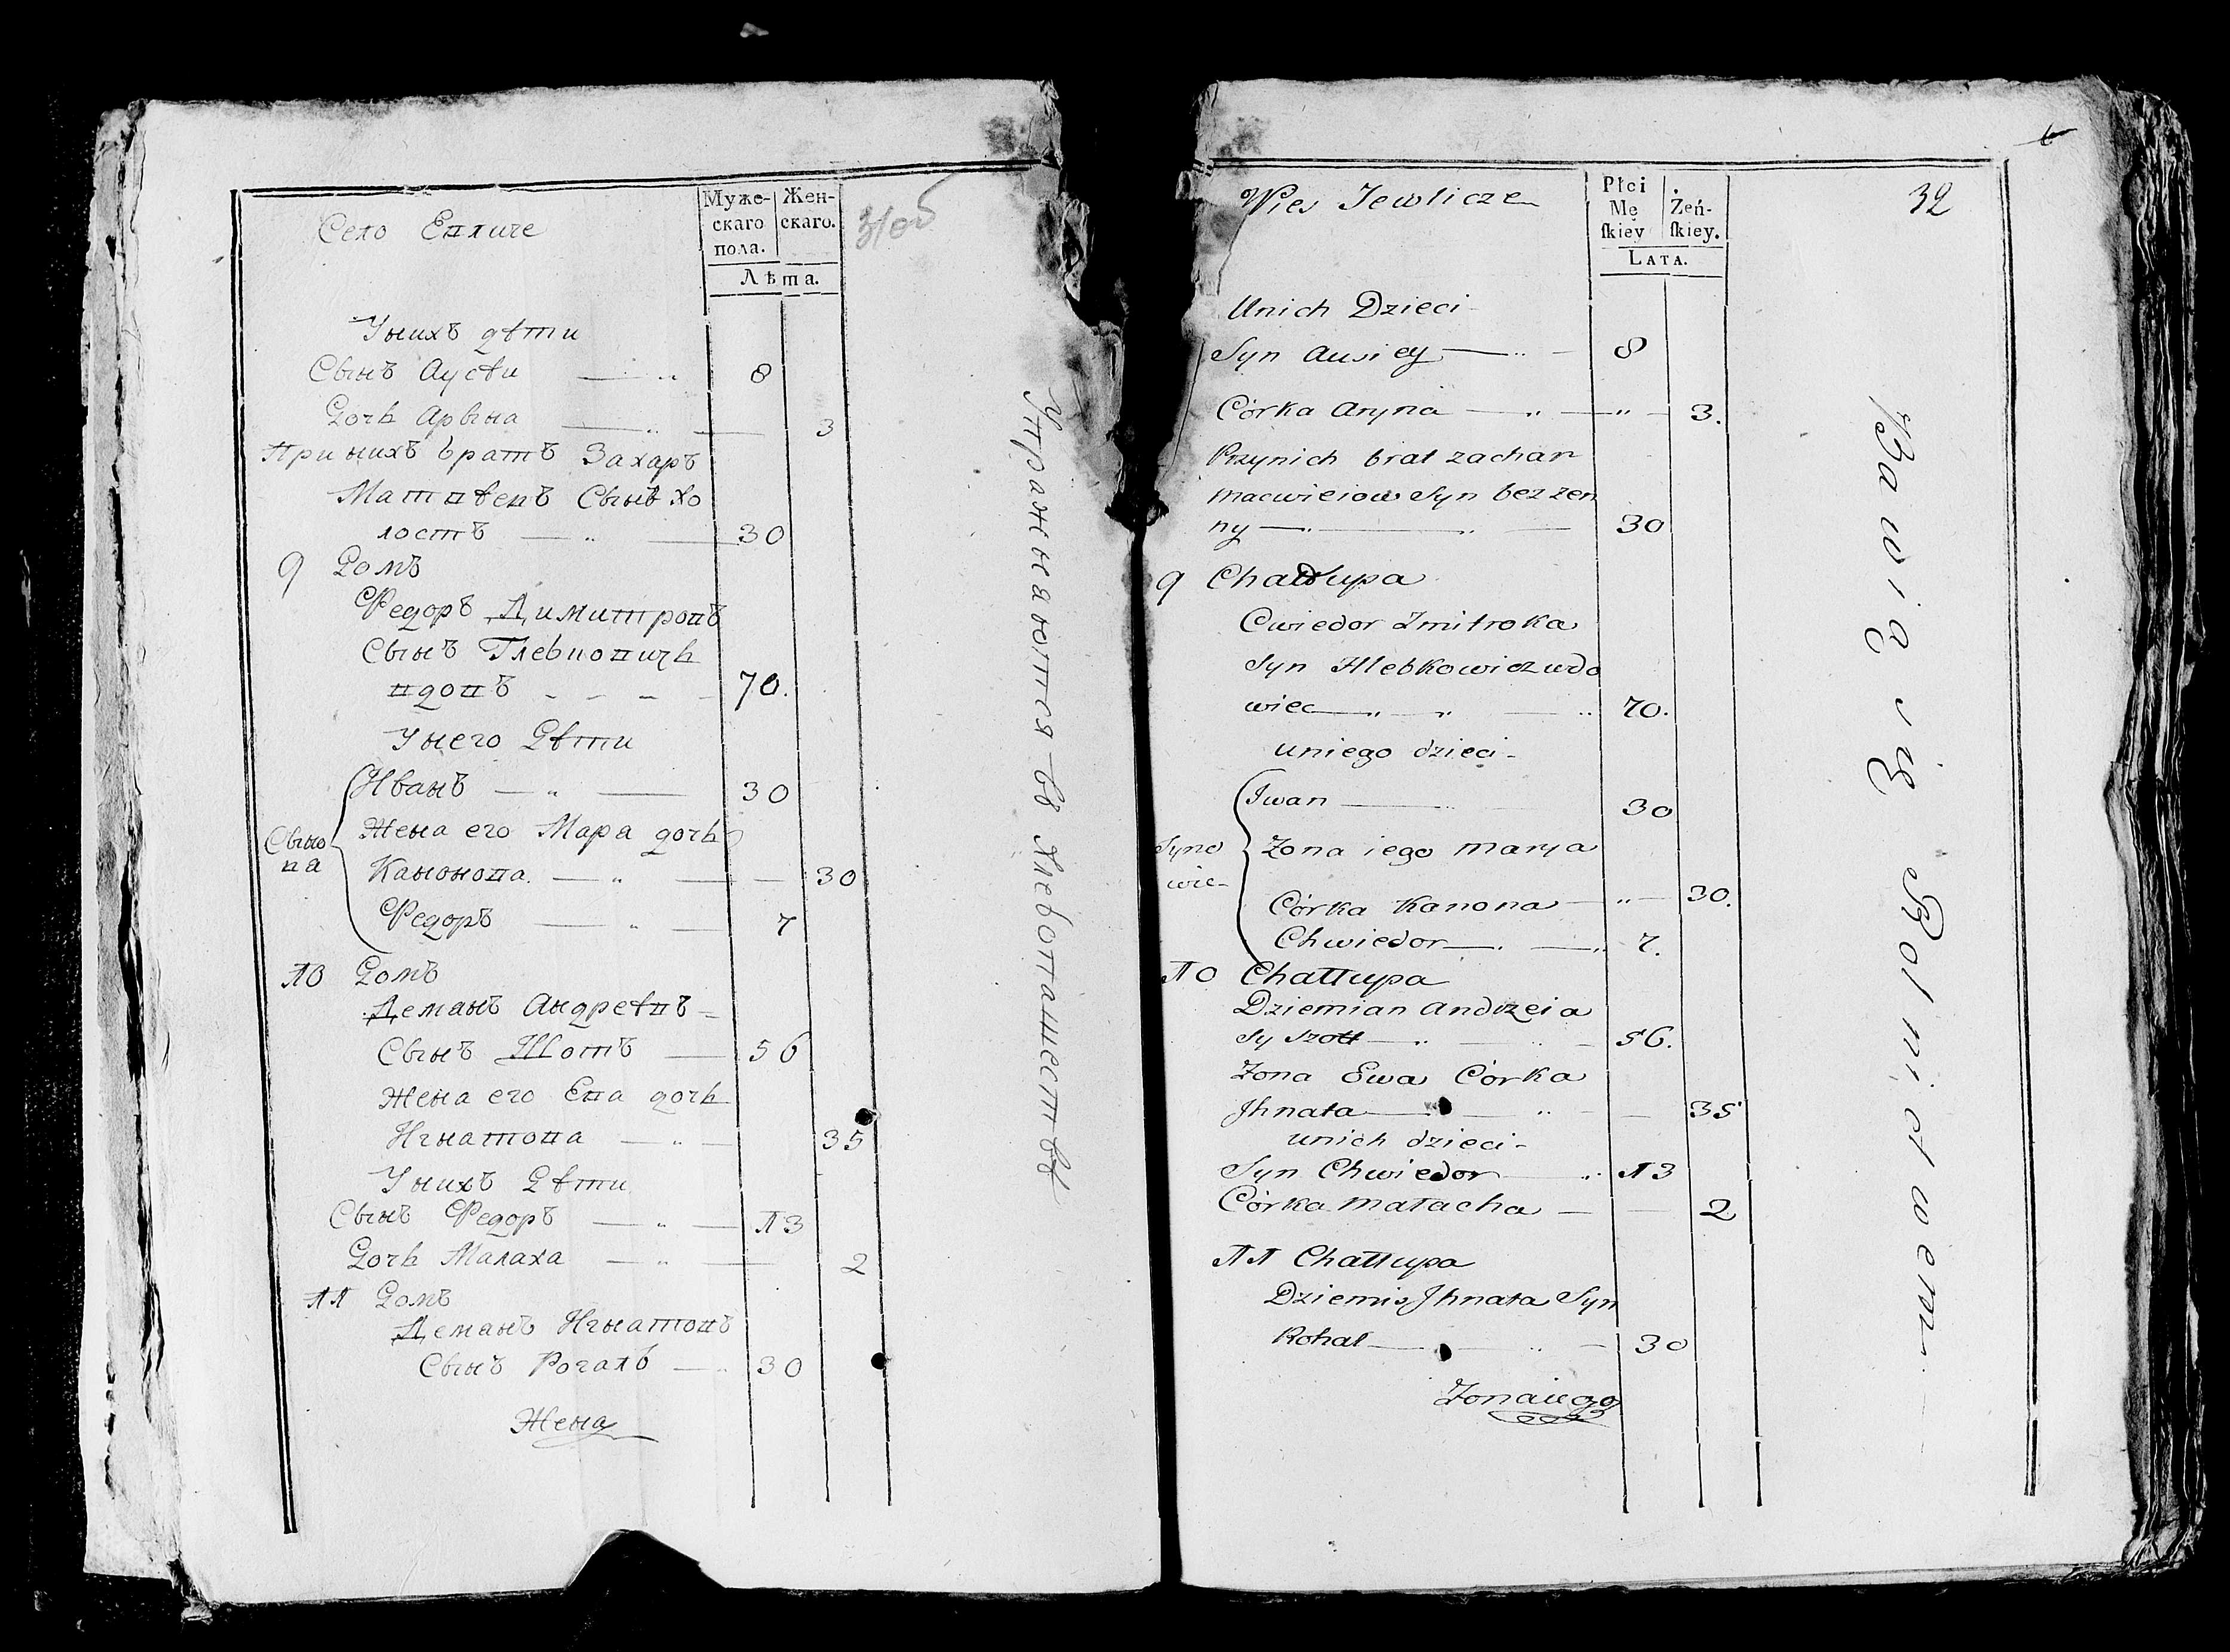 Село Евличе
Муже-
скаго
пола.
Жен-
скаго.
Лѣта.
31об
Унихъ дѣти
Сынъ Аусѣи 8
Дочь Арына 3
Принихъ братъ Захаръ
Матвѣевъ Сынъ хо
лостъ 30
9 Домъ
Федоръ Димитровъ
Сынъ Глебковичь
вдовъ 70.
Унего Дѣти
Сыно
ва
Иванъ 30
Жена его Мара дочь
Канонова. 30
Федоръ 7
10 Домъ
Деманъ Андреѣвъ
Сынъ Шотъ 56
Жена его Ева дочь
Игнатова 35
Унихъ Дѣти
Сынъ Федоръ 13
Дочь Малаха 2
11 Домъ
Деманъ Игнатовъ
Сынъ Рогаль 30
Жена
Упражнаются въ Хлебопашествѣ
Wies Jewlicze
Płci
Mę
skiey
Żeń-
skiey.
LATA.
32
Unich Dzieci
Syn Ausiey 8
Córka Aryna 3.
Przynich brat zachar
macwieiow Syn bez zen
ny 30
9 Chałupa
Cwiedor Zmitroka
Syn Hlebkowicz wdo
wiec 70.
uniego dzieci
Syno
wie
Iwan 30
Zona iego marya
Córka Kanona 30.
Chwiedor 7.
10 Chałłupa
Dziemian andrzeia
Sy Szott 56.
Zona Ewa Córka
Jhnata 35
unich dzieci
Syn Chwiedor 13
Córka małacha 2
11 Chałłupa
Dziemis Jhnata Syn
Rohal 30
Zona iego
Bawią się Rolnictwem